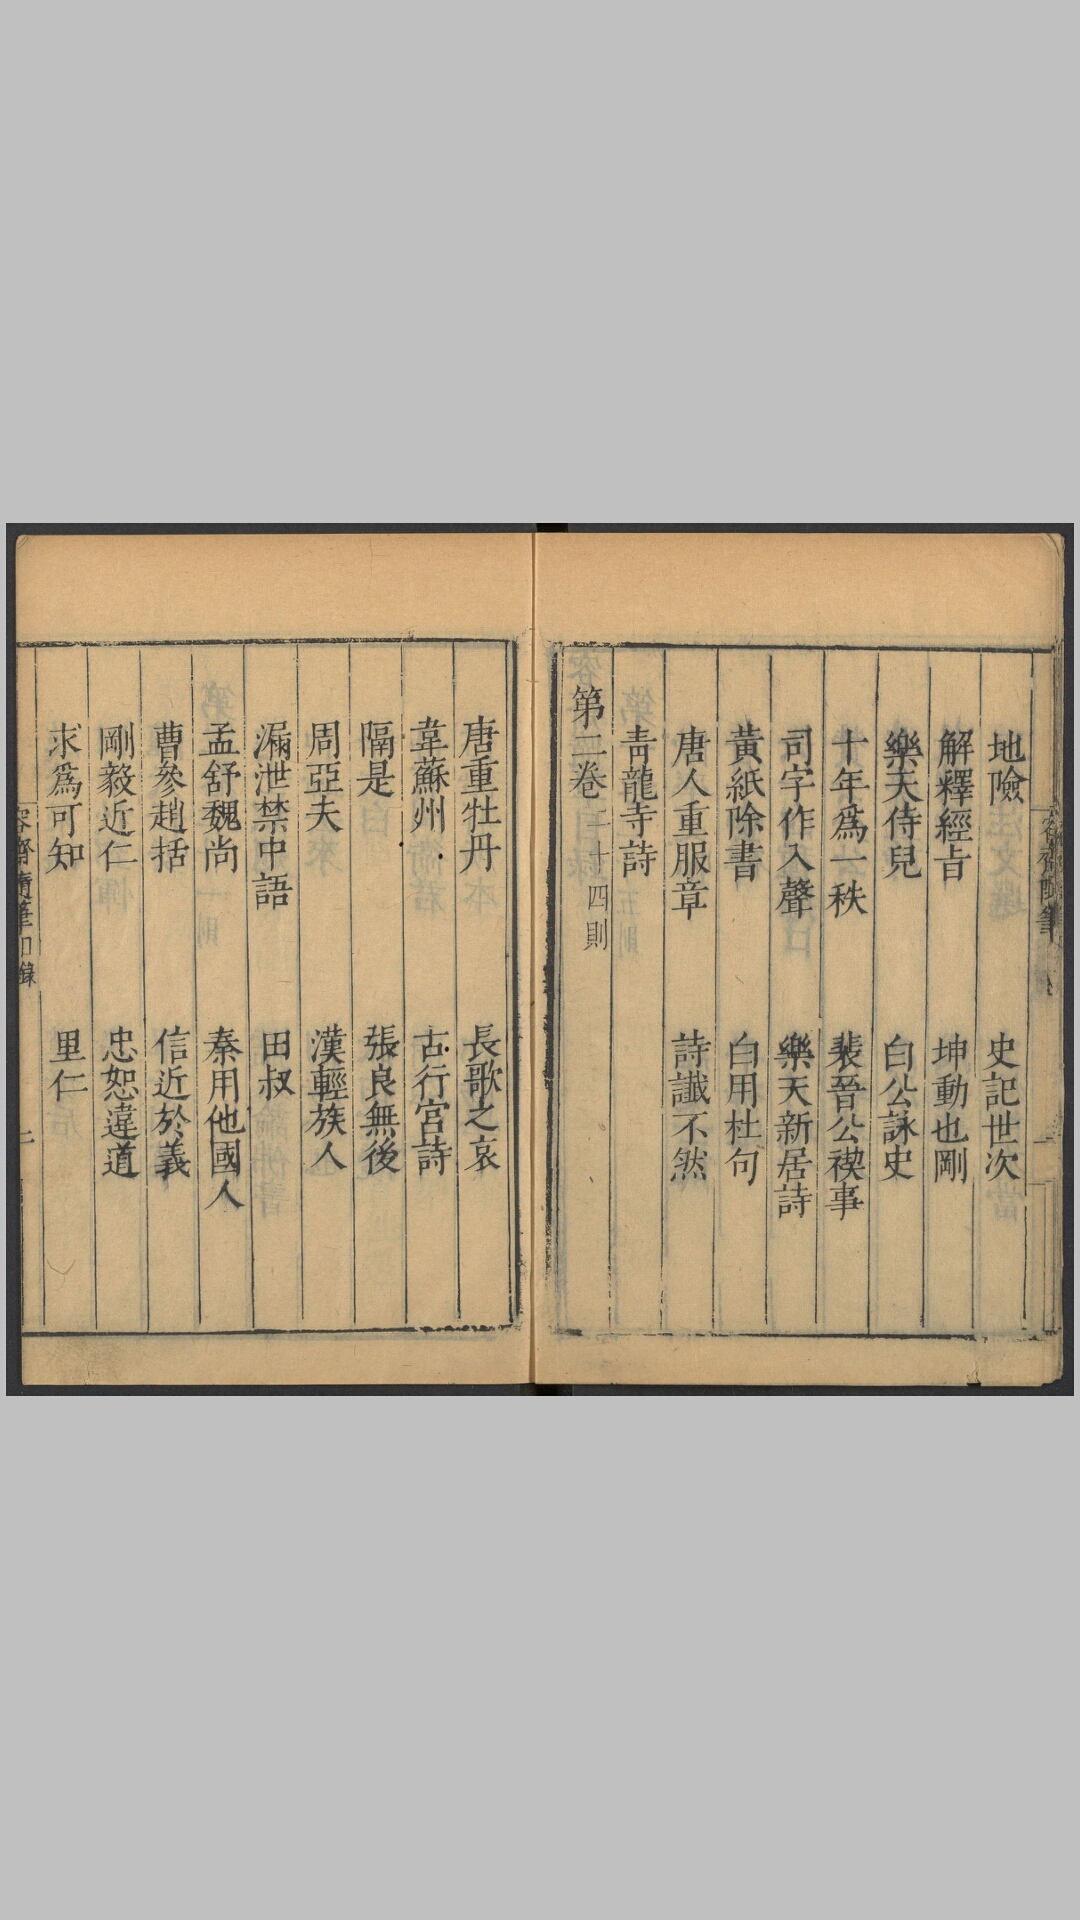 地險　史記世次
解釋經旨　坤動也剛
樂天侍兒　白公詠史
十年爲一秩　裴晉公禊事
司字作入聲　樂天新居詩
黃紙除書　白用杜句
唐人重服章　詩讖不然
靑龍寺詩
第二卷二十四則
唐重牡丹　長歌之哀
韋蘇州　古行宮詩
隔是　張良無後
周亞夫　漢輕族人
漏泄禁中語　田叔
孟舒魏尚　秦用他國人
曹參趙括　信近於義
剛毅近仁　忠恕違道
求爲可知　里仁
容齋隨筆目錄　二